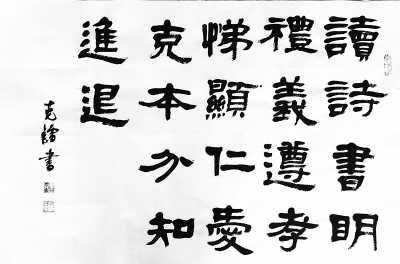 讀詩書明
禮義遵孝
悌顯仁愛
克本分知
進退
克 書